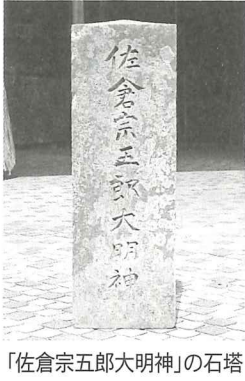 佐倉宗五郎大明神
「佐倉宗五郎大明神」の石塔